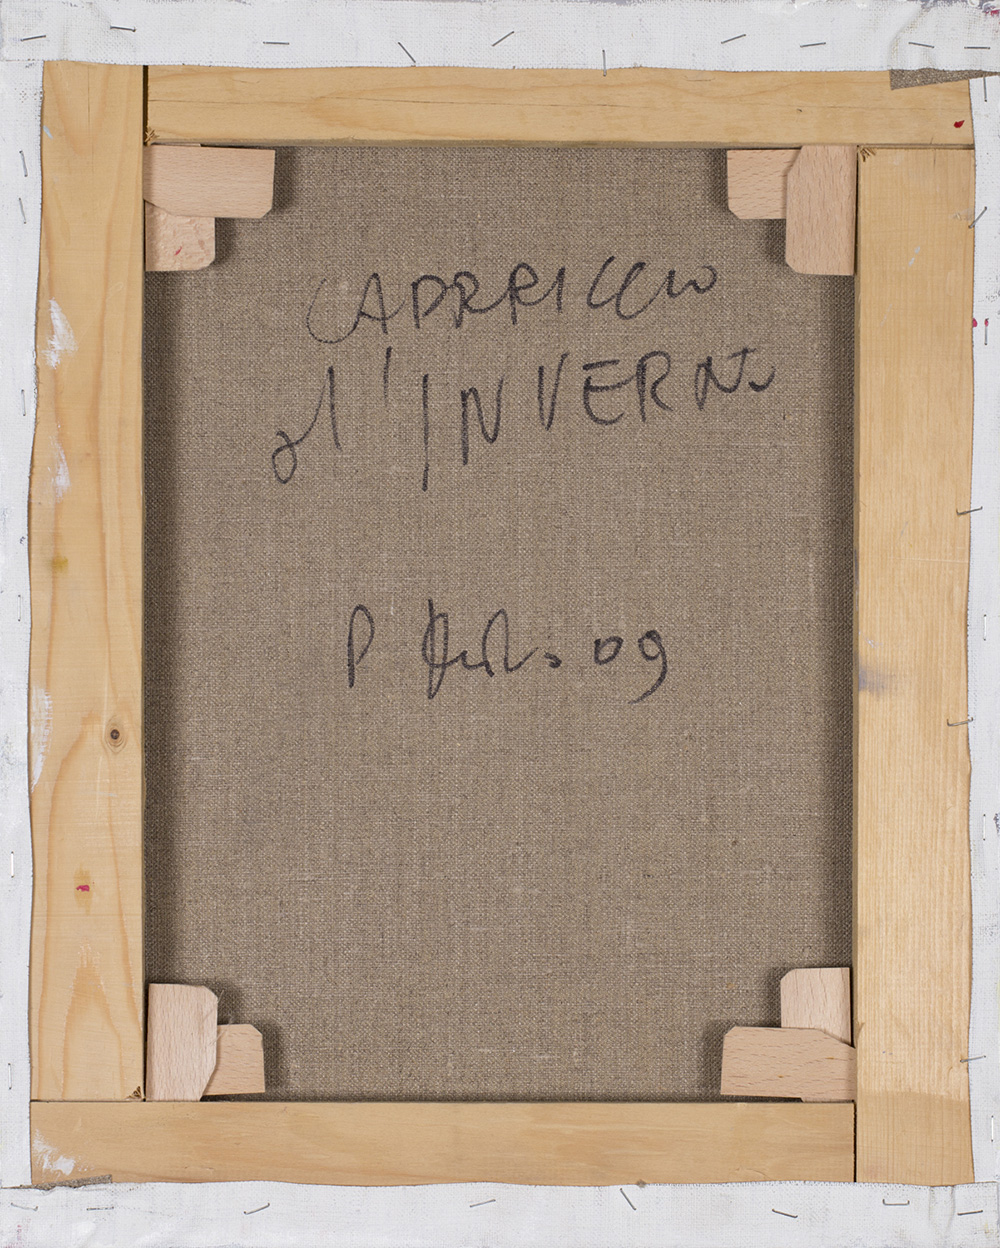 CAPRRICCIO
d'INVERNO
P 09